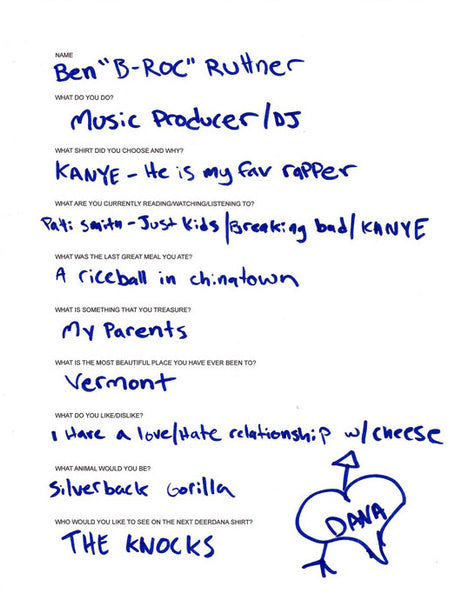 NAME
Ben "B-ROC" Ruttner
WHAT DO YOU DO?
Music Producer/DJ
WHAT SHIRT DID YOU CHOOSE AND WHY?
KANYE - He is my fav rapper
WHAT ARE YOU CURRENTLY READING/WATCHING/LISTENING TO?
Patti Smith - Just Kids/Breaking bad/KANYE
WHAT WAS THE LAST GREAT MEAL YOU ATE?
A riceball in chinatown
WHAT IS SOMETHING THAT YOU TREASURE?
My Parents
WHAT IS THE MOST BEAUTIFUL PLACE YOU HAVE EVER BEEN TO?
Vermont
WHAT DO YOU LIKE/DISLIKE?
I Have a love/Hate relationship w/ cheese
WHAT ANIMAL WOULD YOU BE?
Silverback Gorilla
WHO WOULD YOU LIKE TO SEE ON THE NEXT DEERDANA SHIRT?
THE KNOCKS
DANA